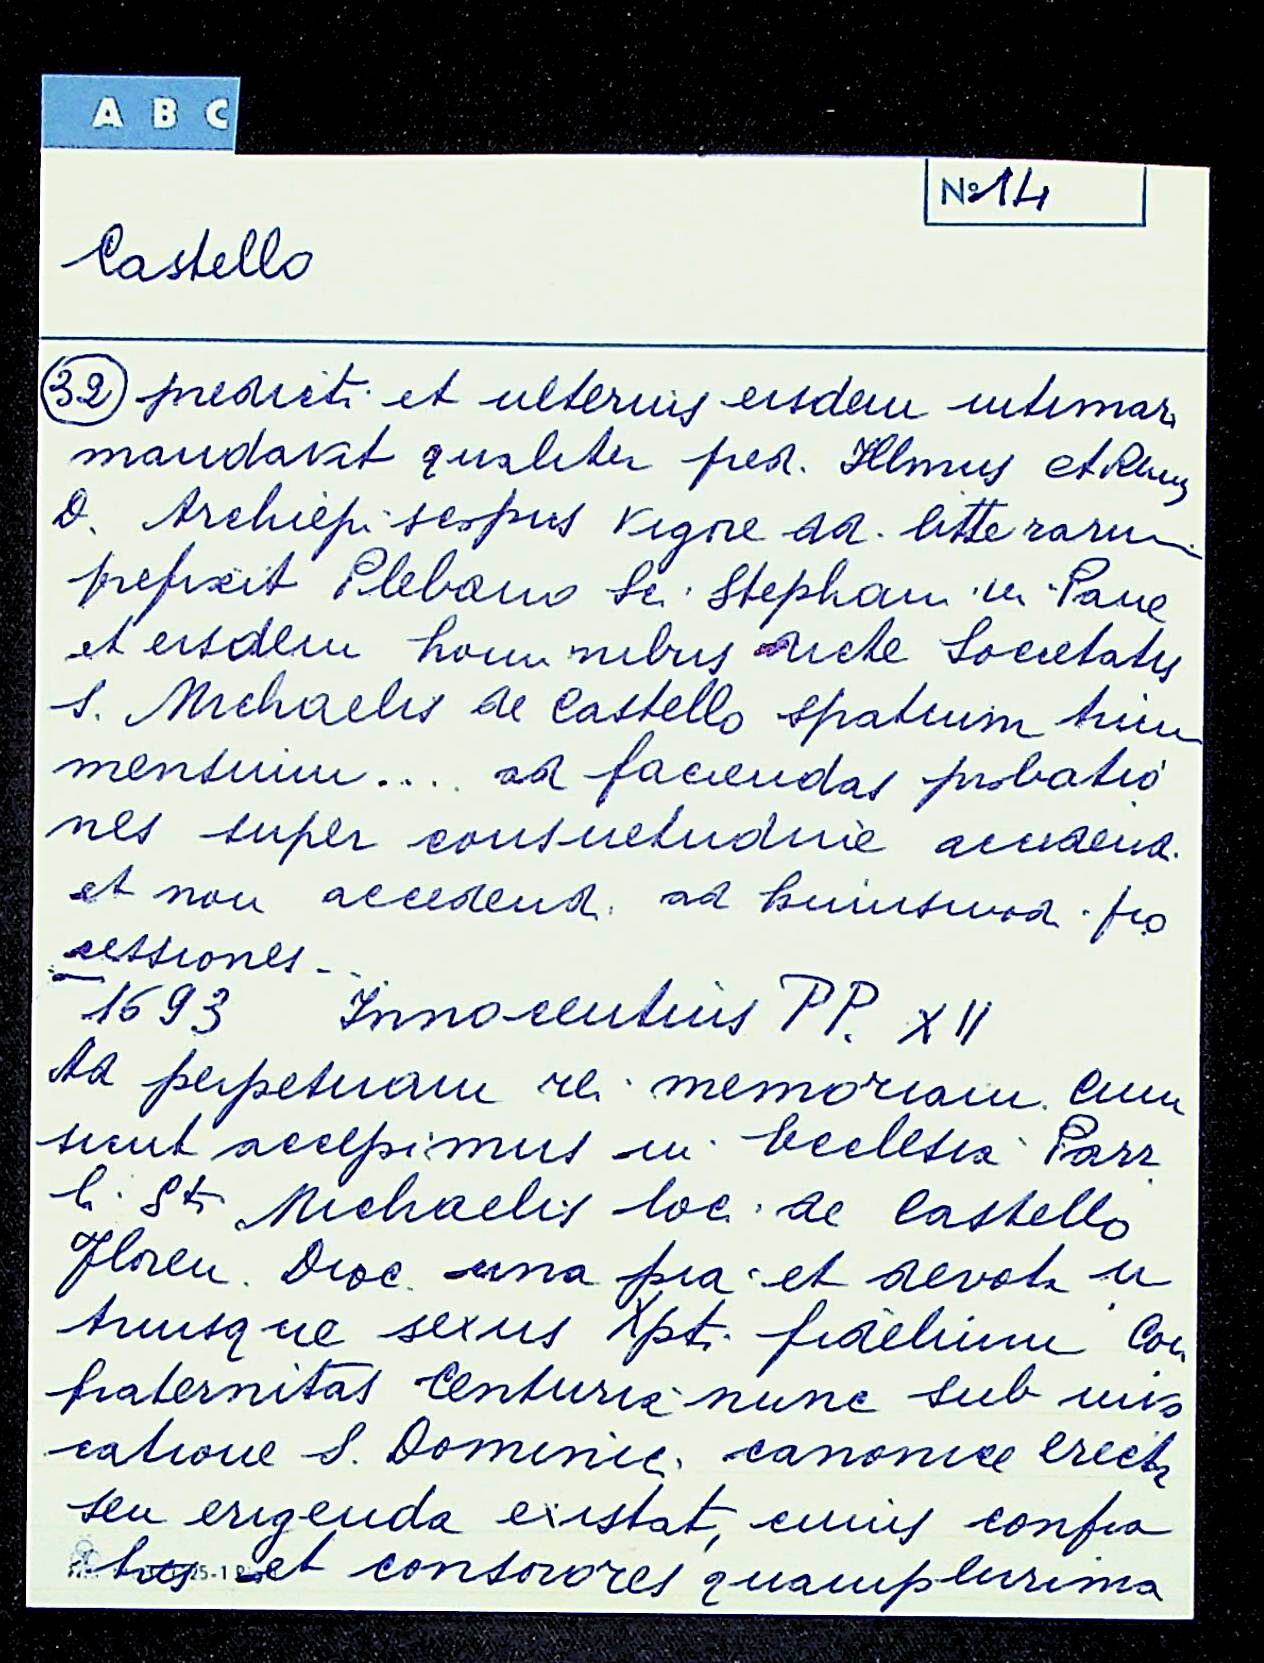 A B C
No 14
Castello
32 predicti et ulterius eisdem intimari
mandavit qualiter pred. Illmus et Rmus
D. Archiepi scopus vigore dd. litterarum
prefixit Plebano Sci. Stephani in Pane
et eisdem hominibus dicte Societatis
S. Michaelis de Castello spatium trium
mensium.... ad faciendas probatio
nes super consuetudine accedend.
et non accedend. ad huiusmod. pro
cessiones -..
1693 Innocentius PP. XII
Ad perpetuam rei memoriam. Cum
sicut accepimus in Ecclesia Parr
li. Sti Michaelis loci de Castello
Floren. Dioc. una pia et devota u
triusque sexus Xpti. fidelium Con
fraternitas Centuria nunc sub invo
catione S. Dominici canonice erecta
seu erigenda existat, cuius confra
tres et consorores quamplurima